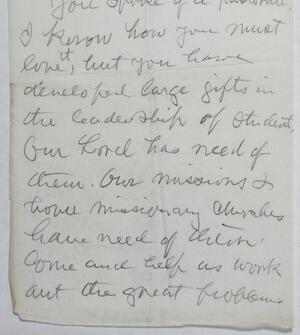 You spoke of a pastorate,
I know how you must
love it, but you have
developed large gifts in
the leadership of students,
Our Lord has need of
them. Our missions &
home missionary churches
have need of them.
Come and help us work
out the great problems